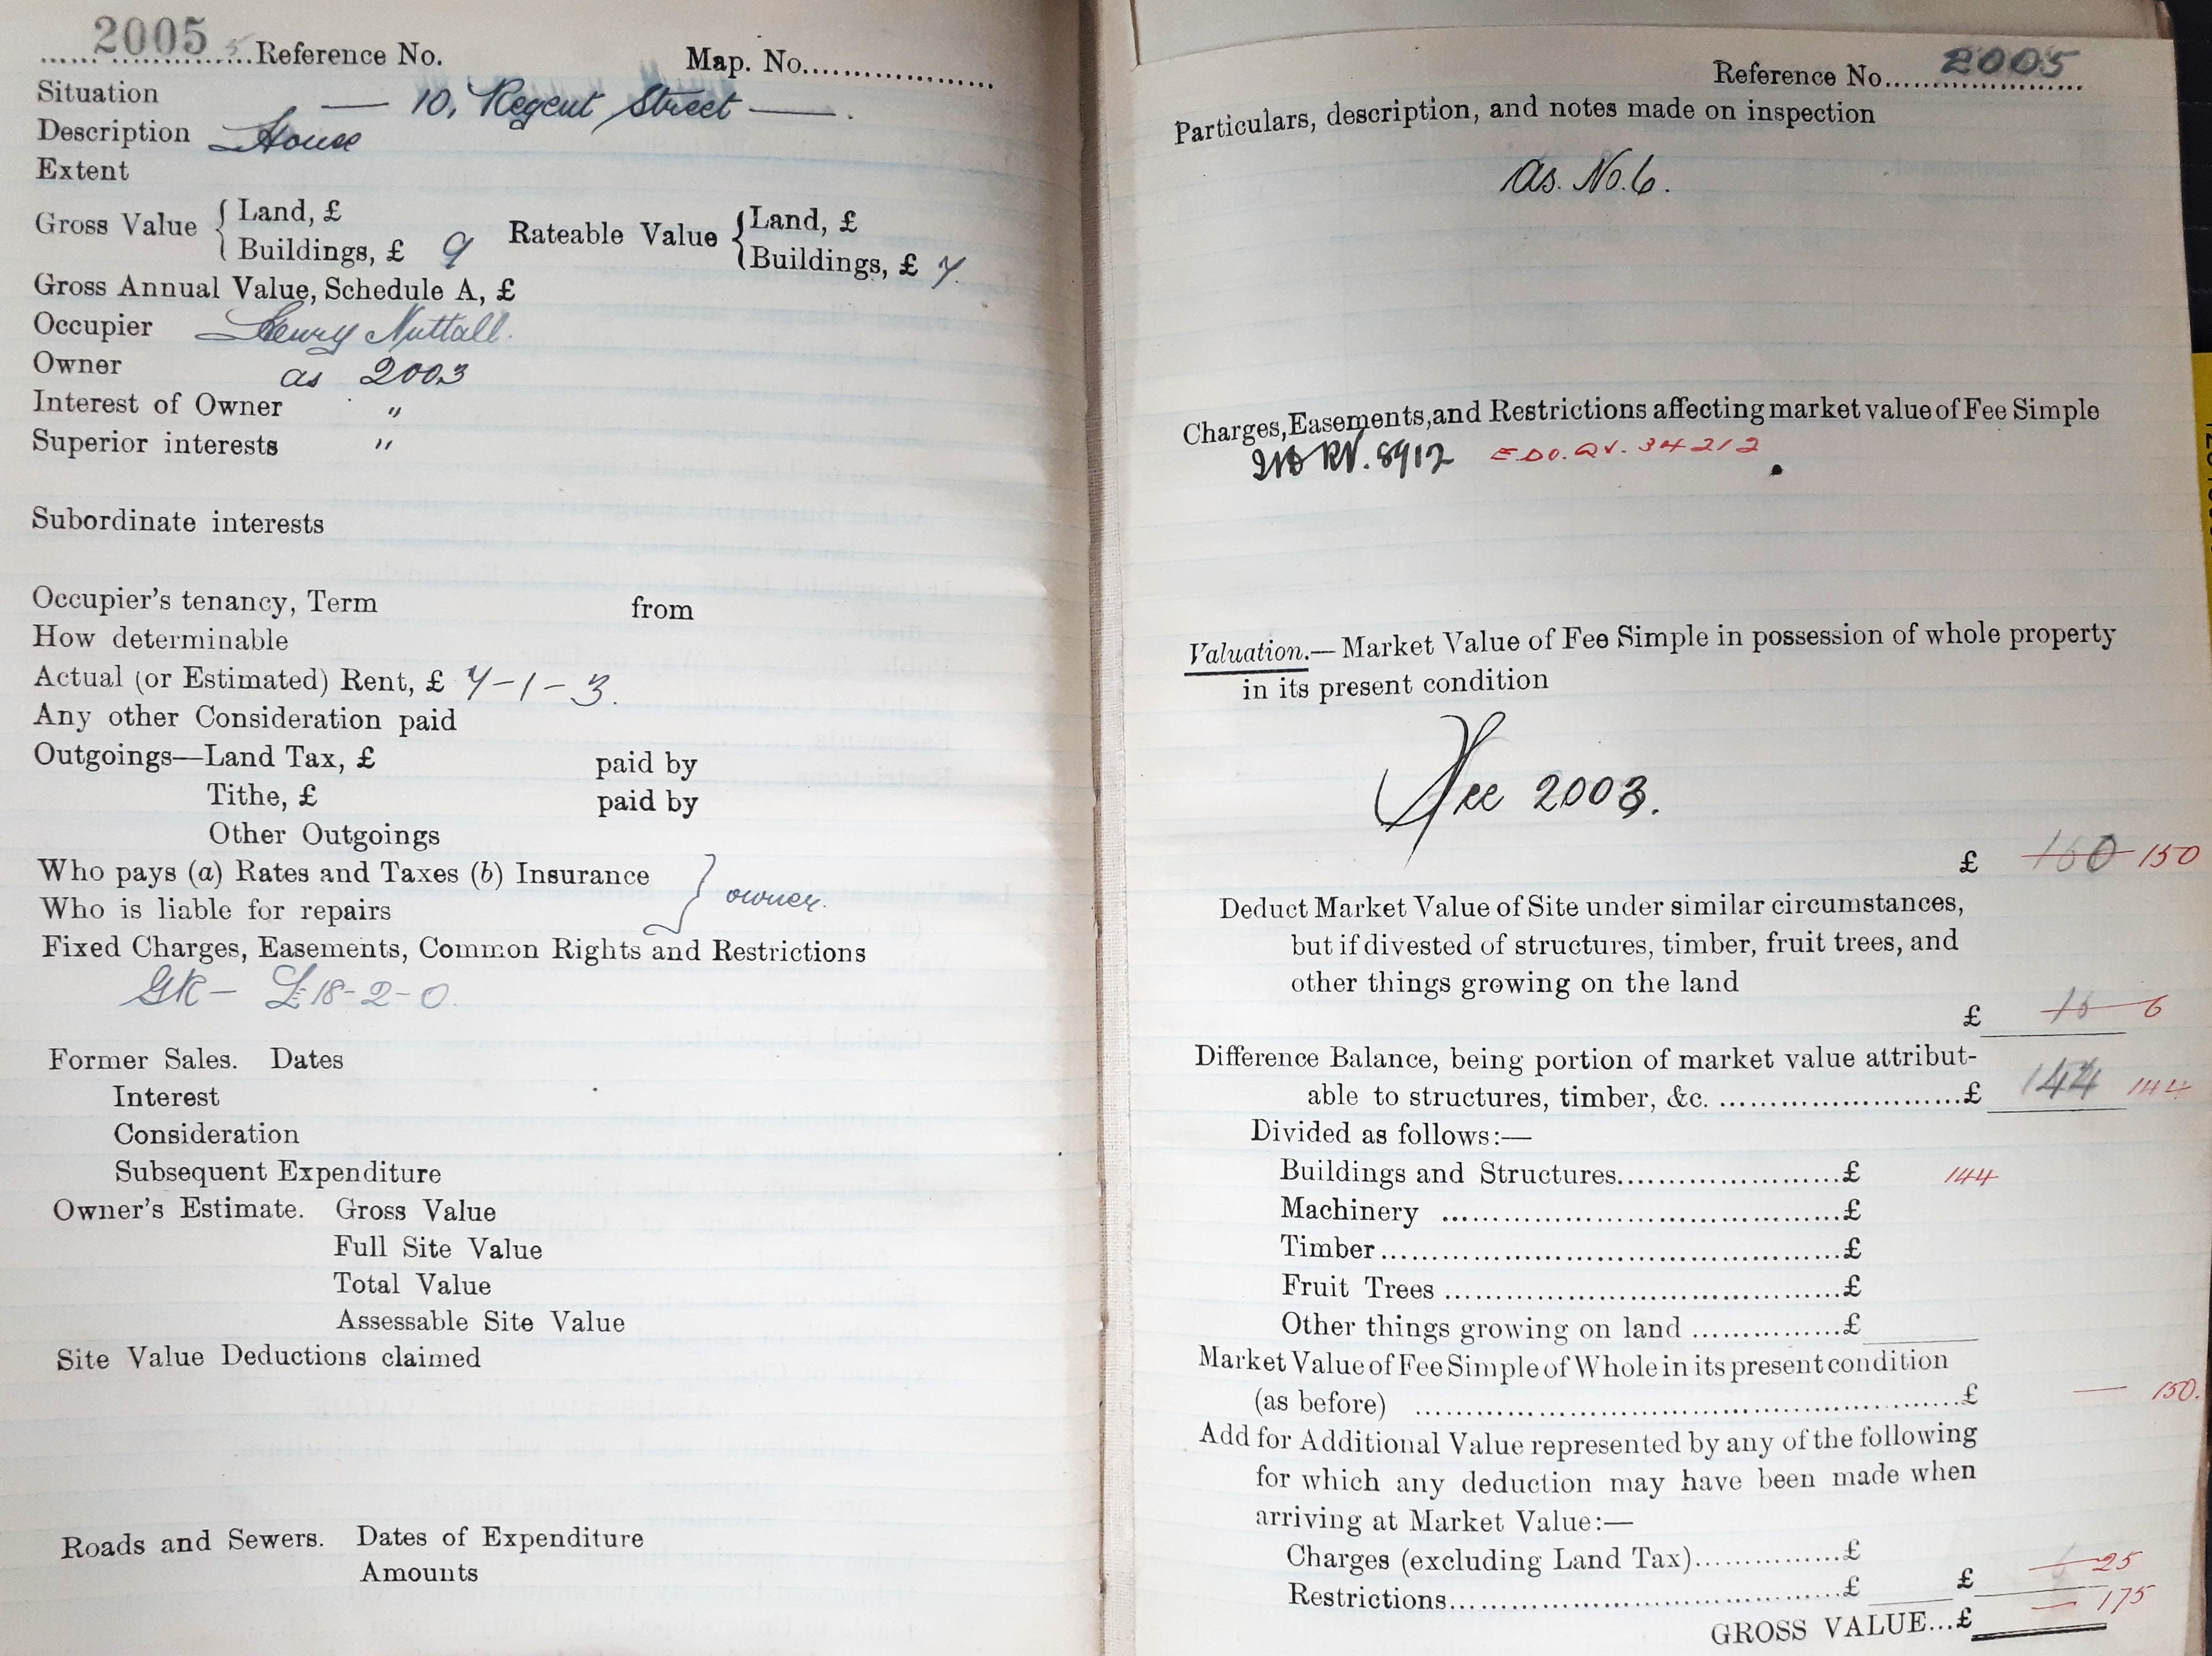 2005 Reference No. Map. No.
Situation — 10, Regent Street —.
Description House
Extent
Gross Value { Land, £
Buildings, £ 9
Rateable Value { Land, £
Buildings, £ 7.
Gross Annual Value, Schedule A, £
Occupier Henry Nuttall.
Owner as 2003
Interest of Owner "
Superior interests "
Subordinate interests
Occupier's tenancy, Term from
How determinable
Actual (or Estimated) Rent, £ 7-1-3.
Any other Consideration paid
Outgoings—Land Tax, £ paid by
Tithe, £ paid by
Other Outgoings
Who pays (a) Rates and Taxes (b) Insurance
Who is liable for repairs } owner.
Fixed Charges, Easements, Common Rights and Restrictions
GR — £18-2-0.
Former Sales. Dates
Interest
Consideration
Subsequent Expenditure
Owner's Estimate. Gross Value
Full Site Value
Total Value
Assessable Site Value
Site Value Deductions claimed
Roads and Sewers. Dates of Expenditure
Amounts
Reference No. 2005
Particulars, description, and notes made on inspection
as. No. 6.
Charges, Easements, and Restrictions affecting market value of Fee Simple
RV. 8912 EDO. QV. 34212
Valuation.— Market Value of Fee Simple in possession of whole property
in its present condition
See 2003.
£ 160 150
Deduct Market Value of Site under similar circumstances,
but if divested of structures, timber, fruit trees, and
other things growing on the land
£ 16 6
Difference Balance, being portion of market value attribut-
able to structures, timber, &c. £ 144 144
Divided as follows:—
Buildings and Structures £ 144
Machinery £
Timber £
Fruit Trees £
Other things growing on land £
Market Value of Fee Simple of Whole in its present condition
(as before) £ — 150.
Add for Additional Value represented by any of the following
for which any deduction may have been made when
arriving at Market Value:—
Charges (excluding Land Tax) £
Restrictions £ £ 25
GROSS VALUE...£ — 175